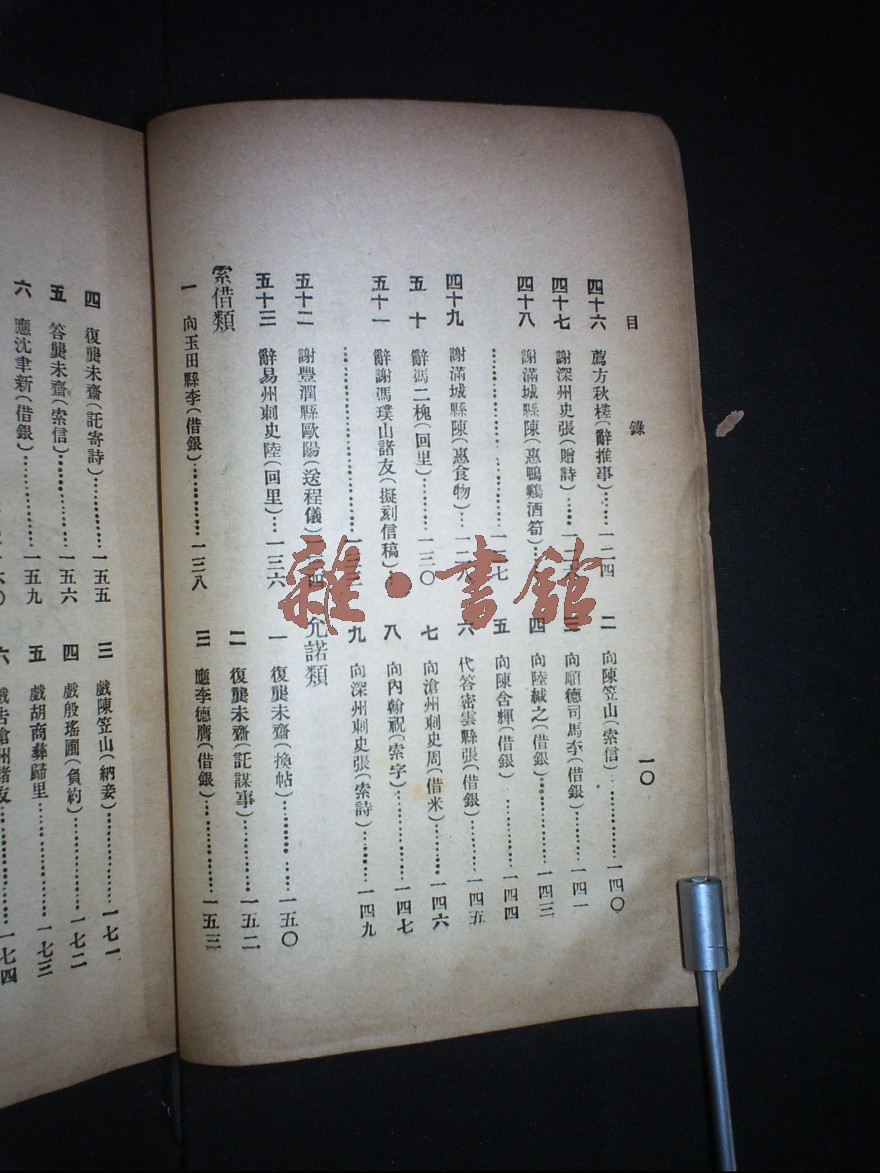 目錄
一〇
四十六 薦方秋槎(辭推事)………一二四
四十七 謝深州史張(贈詩)……一二五
四十八 謝滿城縣陳(惠鴨鷄酒筍)…
………一二七
四十九 謝滿城縣陳(惠食物)…一二八
五十 辭馮二槐(回里)………一三〇
五十一 辭謝馮璞山諸友(擬刻信稿)…
………
五十二 謝豐潤縣歐陽(送程儀)
五十三 辭易州刺史陸(回里)…一三六
索借類
一 向玉田縣李(借銀)………一三八
二 向陳笠山(索信)………一四〇
三 向順德司馬李(借銀)………一四一
四 向陸緘之(借銀)………一四三
五 向陳含輝(借銀)………一四四
六 代答密雲縣張(借銀)………一四五
七 向滄州刺史周(借米)………一四六
八 向內翰祝(索字)………一四七
九 向深州刺史張(索詩)………一四九
允諾類
一 復龔未齋(換帖)………一五〇
二 復龔未齋(託謀事)………一五二
三 應李德膺(借銀)………一五三
四 復龔未齋(託寄詩)………一五五
五 答龔未齋(索信)………一五六
六 應沈聿新(借銀)………一五九
三 戲陳笠山(納妾)………一七一
四 戲殷瑤圃(負約)………一七二
五 戲胡商彝歸里………一七三
六 戲告滄州諸友………一七四
雜·書館